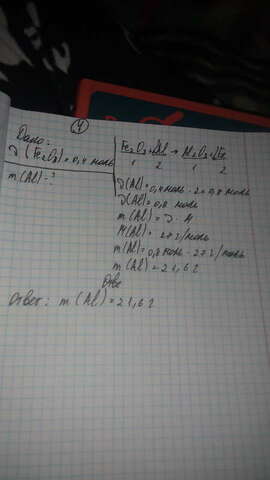 4
Дано:
ν(Fe2O3)=0,4 моль
m(Al)=?
Fe2O3+2Al → Al2O3+2Fe
1 2 1 2
ν(Al)=0,4моль·2=0,8моль
ν(Al)=0,8 моль
m(Al)=ν·M
M(Al)=27г/моль
m(Al)=0,8моль·27г/моль
m(Al)=21,6г
Отве
Ответ: m(Al)=21,6г